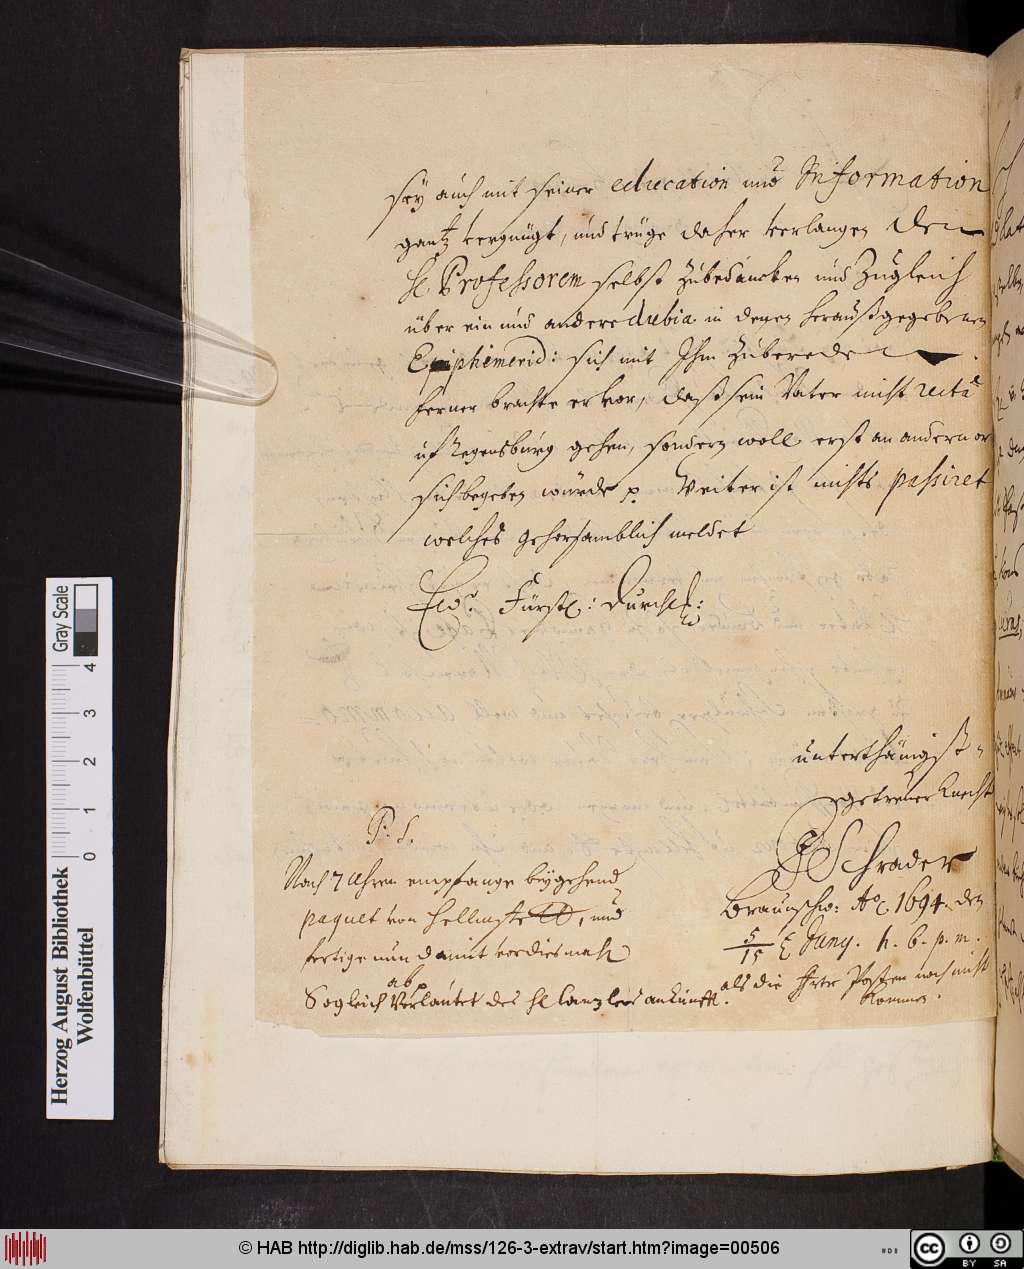 sey auch mit seiner education und Information
gantz vergnügt, und trüge daher verlangen den
H. Professorem selbst zubedancken und zugleich
über ein und andere dubia in denen heraußgegebenen
Ephimerid: sich mit Ihm zubereden
ferner brachte er vor, daß sein Vater nicht recta
uf Regensburg gehen, sondern woll erst an andern or
sich begeben würde p. Weiter ist nichts passiret
welches gehorsamblich meldet
Ew. Fürstl: Durchl:
unterthänigst-
getreuer Knecht
Schrader
Braunschw: Ao. 1694. den
5/15 Juny. h. 6. p. m.
als die Posten noch nicht
kommen.
P. S.
Nach 7 Uhren empfange beygehend
paquet von Hellmste, und
fertige nun damit vordiesmahl
ab
Sogleich Verlautet des H. Canzlers ankunfft.
Herzog August Bibliothek
Wolfenbüttel
0 1 2 3 4
Gray Scale
© HAB http://diglib.hab.de/mss/126-3-extrav/start.htm?image=00506
cc BY SA